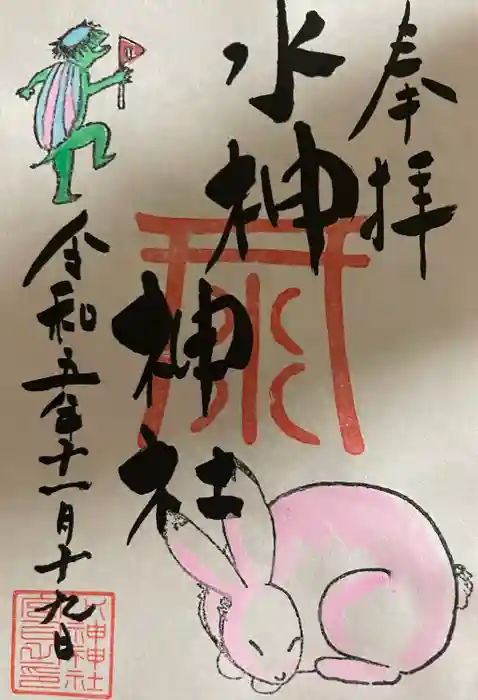 奉拝
水神
神社
令和五年十一月十九日
水神神社